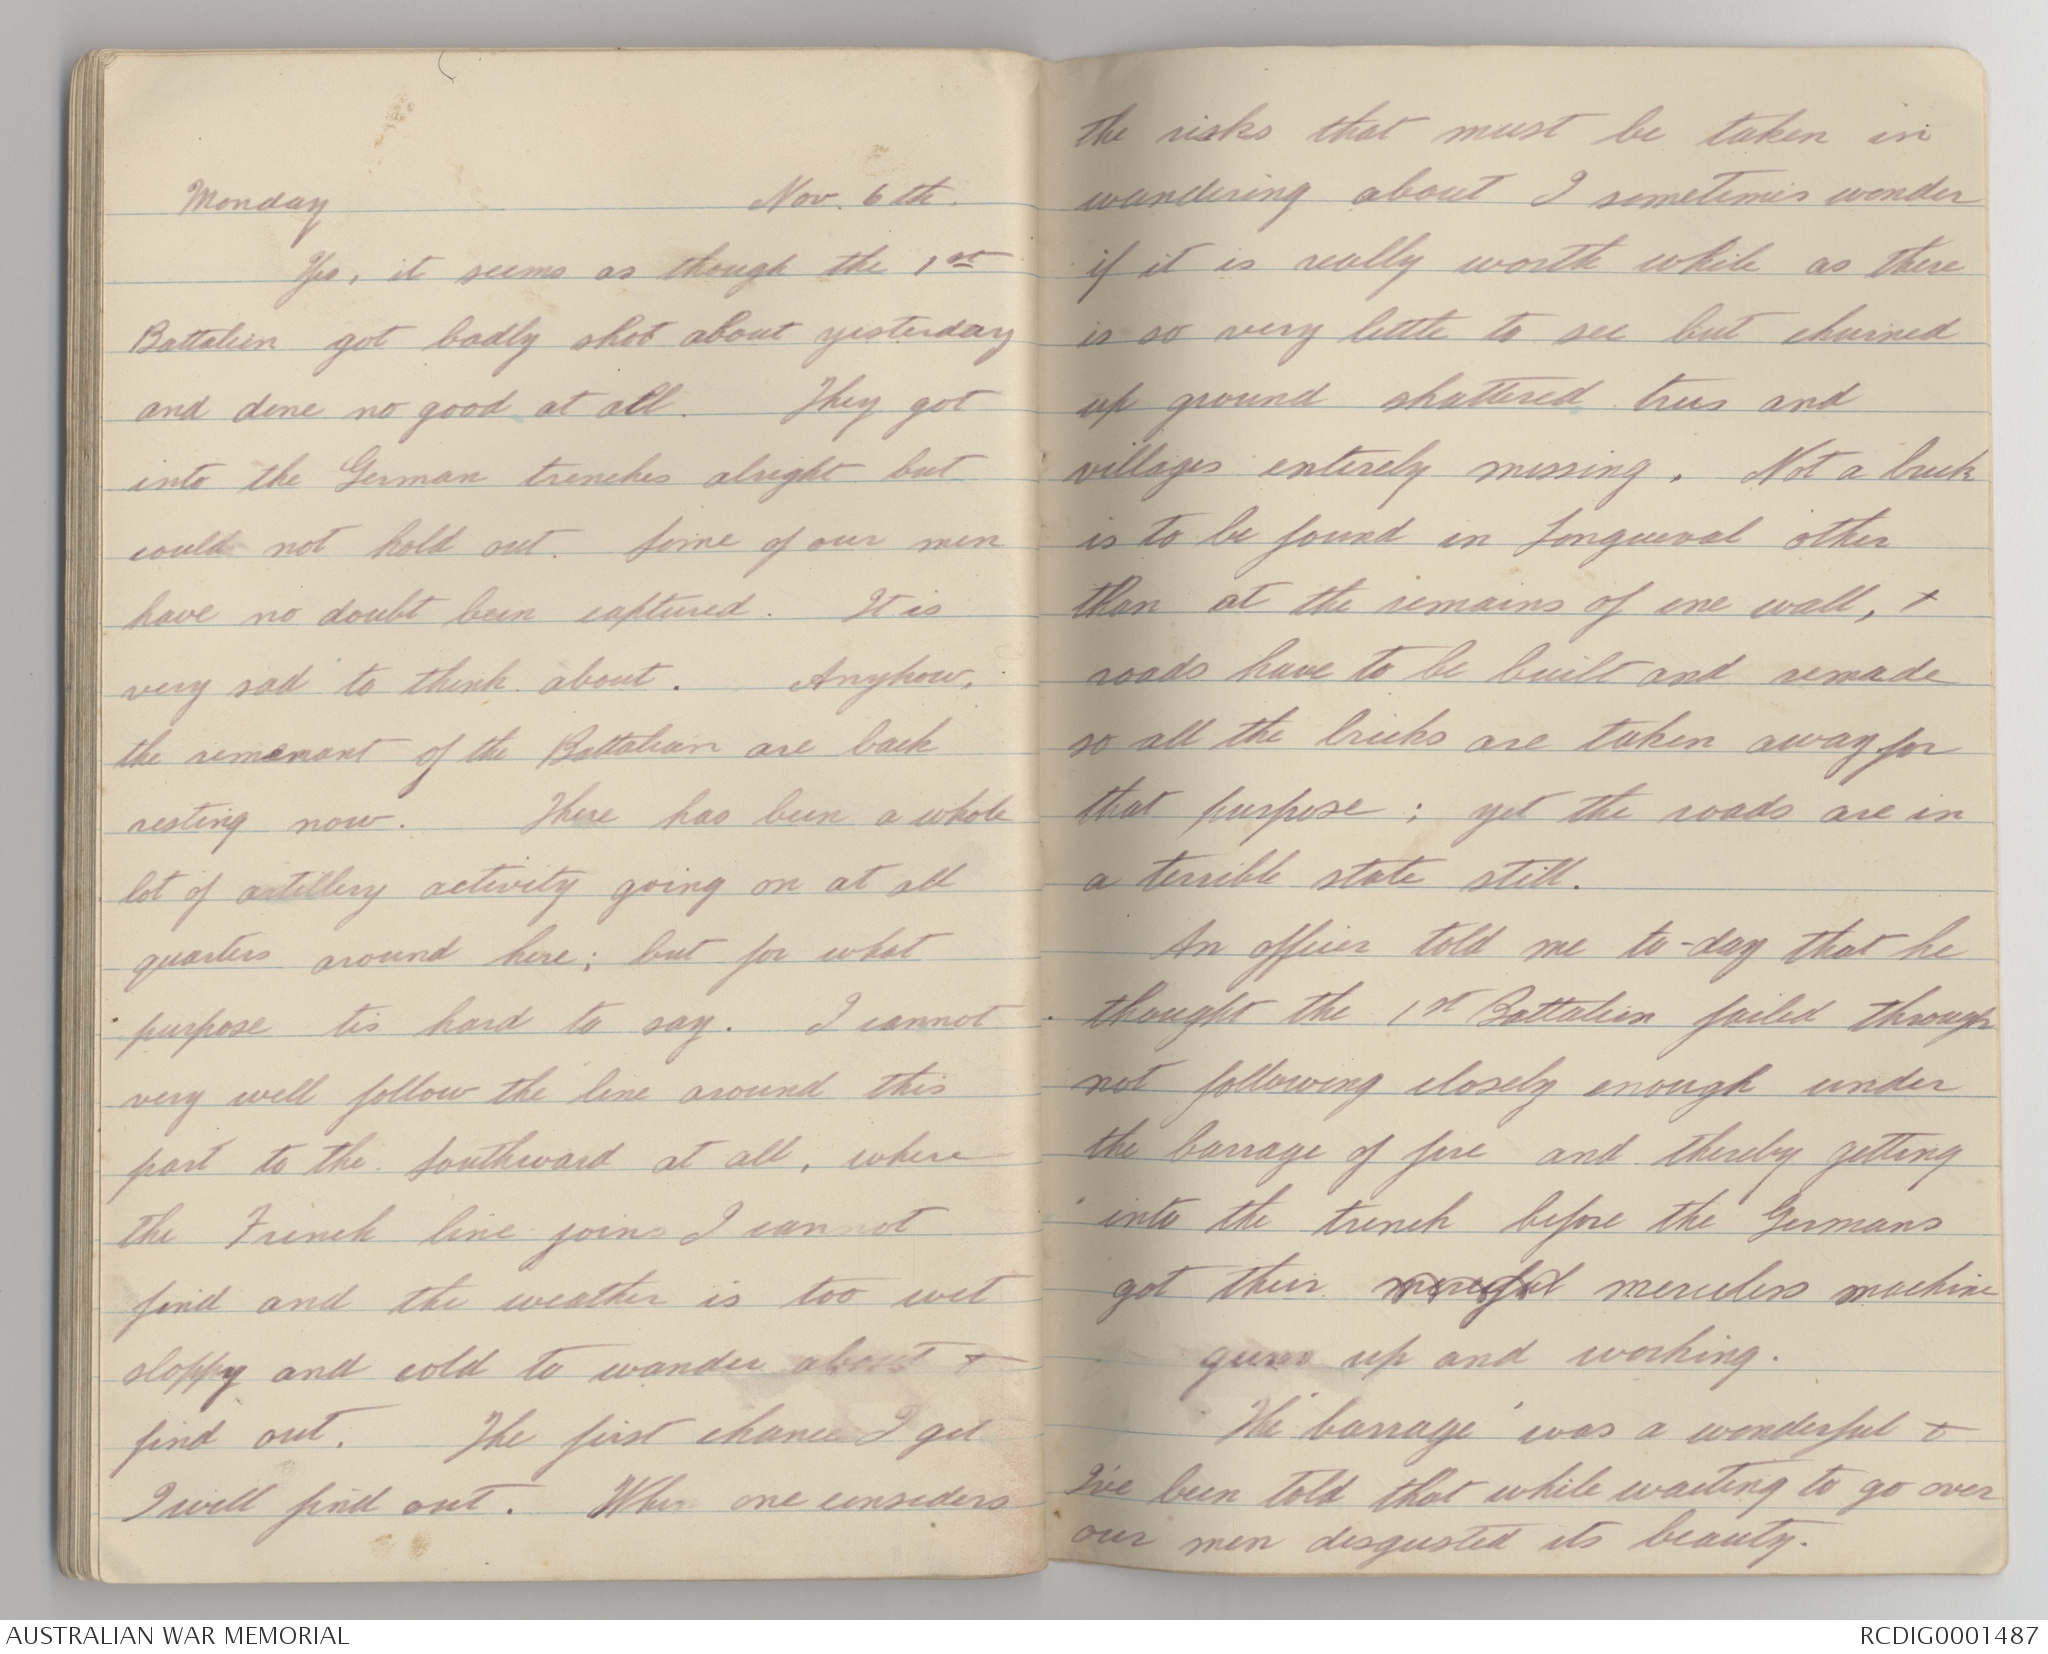 Monday Nov. 6th.
Yes, it seems as though the 1st
Battalion got badly shot about yesterday
and done no good at all. They got
into the German trenches alright but
could not hold out. Some of our men
have no doubt been captured. It is
very sad to think about. Anyhow,
the remanant of the Battalion are back
resting now. There has been a whole
lot of artillery activity going on at all
quarters around here; but for what
purpose tis hard to say. I cannot
very well follow the line around this
part to the Southward at all, where
the French line joins I cannot
find and the weather is too wet
sloppy and cold to wander about &
find out. The first chance I get
I will find out. When one considers
the risks that must be taken in
wandering about I sometimes wonder
if it is really worth while as there
is so very little to see but churned
up ground shattered trees and
villages entirely missing. Not a brick
is to be found in Longueval other
than at the remains of one wall, &
roads have to be built and remade
so all the bricks are taken away for
that purpose; yet the roads are in
a terrible state still.
An officer told me to-day that he
thought the 1st Battalion failed through
not following closely enough under
the barrage of fire and thereby getting
into the trench before the Germans
got their merciful merciless machine
guns up and working.
The 'barrage' was a wonderful &
I've been told that while waiting to go over
our men disgusted its beauty.
AUSTRALIAN WAR MEMORIAL RCDIG0001487